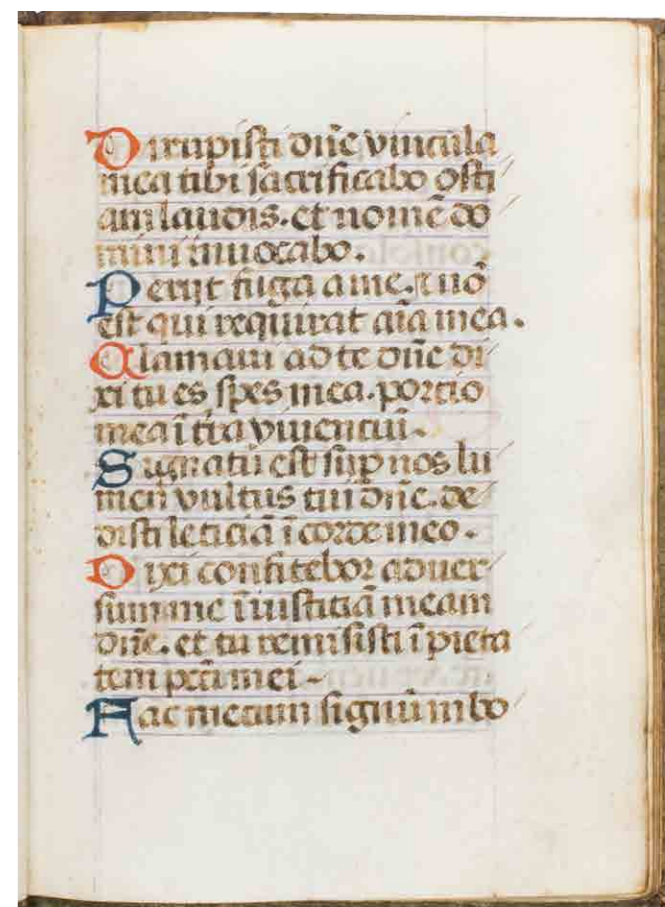 Dirupisti dñe vincula
mea tibi sacrificabo osti
am laudis. et nomē do
mini invocabo.
Periit fuga a me. ⁊ nō
est qui requirat aīa mea.
Clamavi ad te dñe di
xi tu es spes mea. portio
mea ī tr̄a viventiū.
Signatū est suꝑ nos lu
men vultus tui dñe. de
disti leticiā ī corde meo.
Dixi confitebor adver
sum me īiustitiā meam
dñe. et tu remisisti īpieta
tem pcc̄i mei
Fac mecum signū in bo